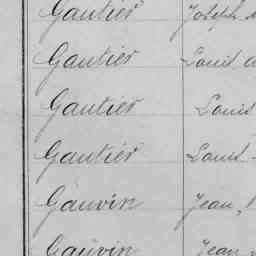 Gautier Joseph
Gautier Louis
Gautier Louis
Gautier Louis
Gauvin Jean,
Gauvin Jean